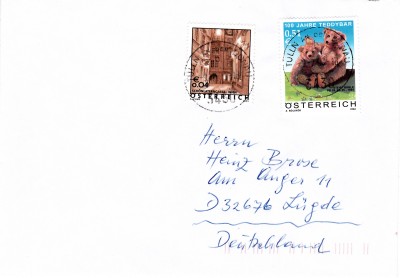 100 JAHRE TEDDYBÄR
0.51
0.04
ÖSTERREICH
ÖSTERREICH
TULLN
3430
Herrn
Heinz Brose
Am Anger 11
D 32676 Lügde
Deutschland